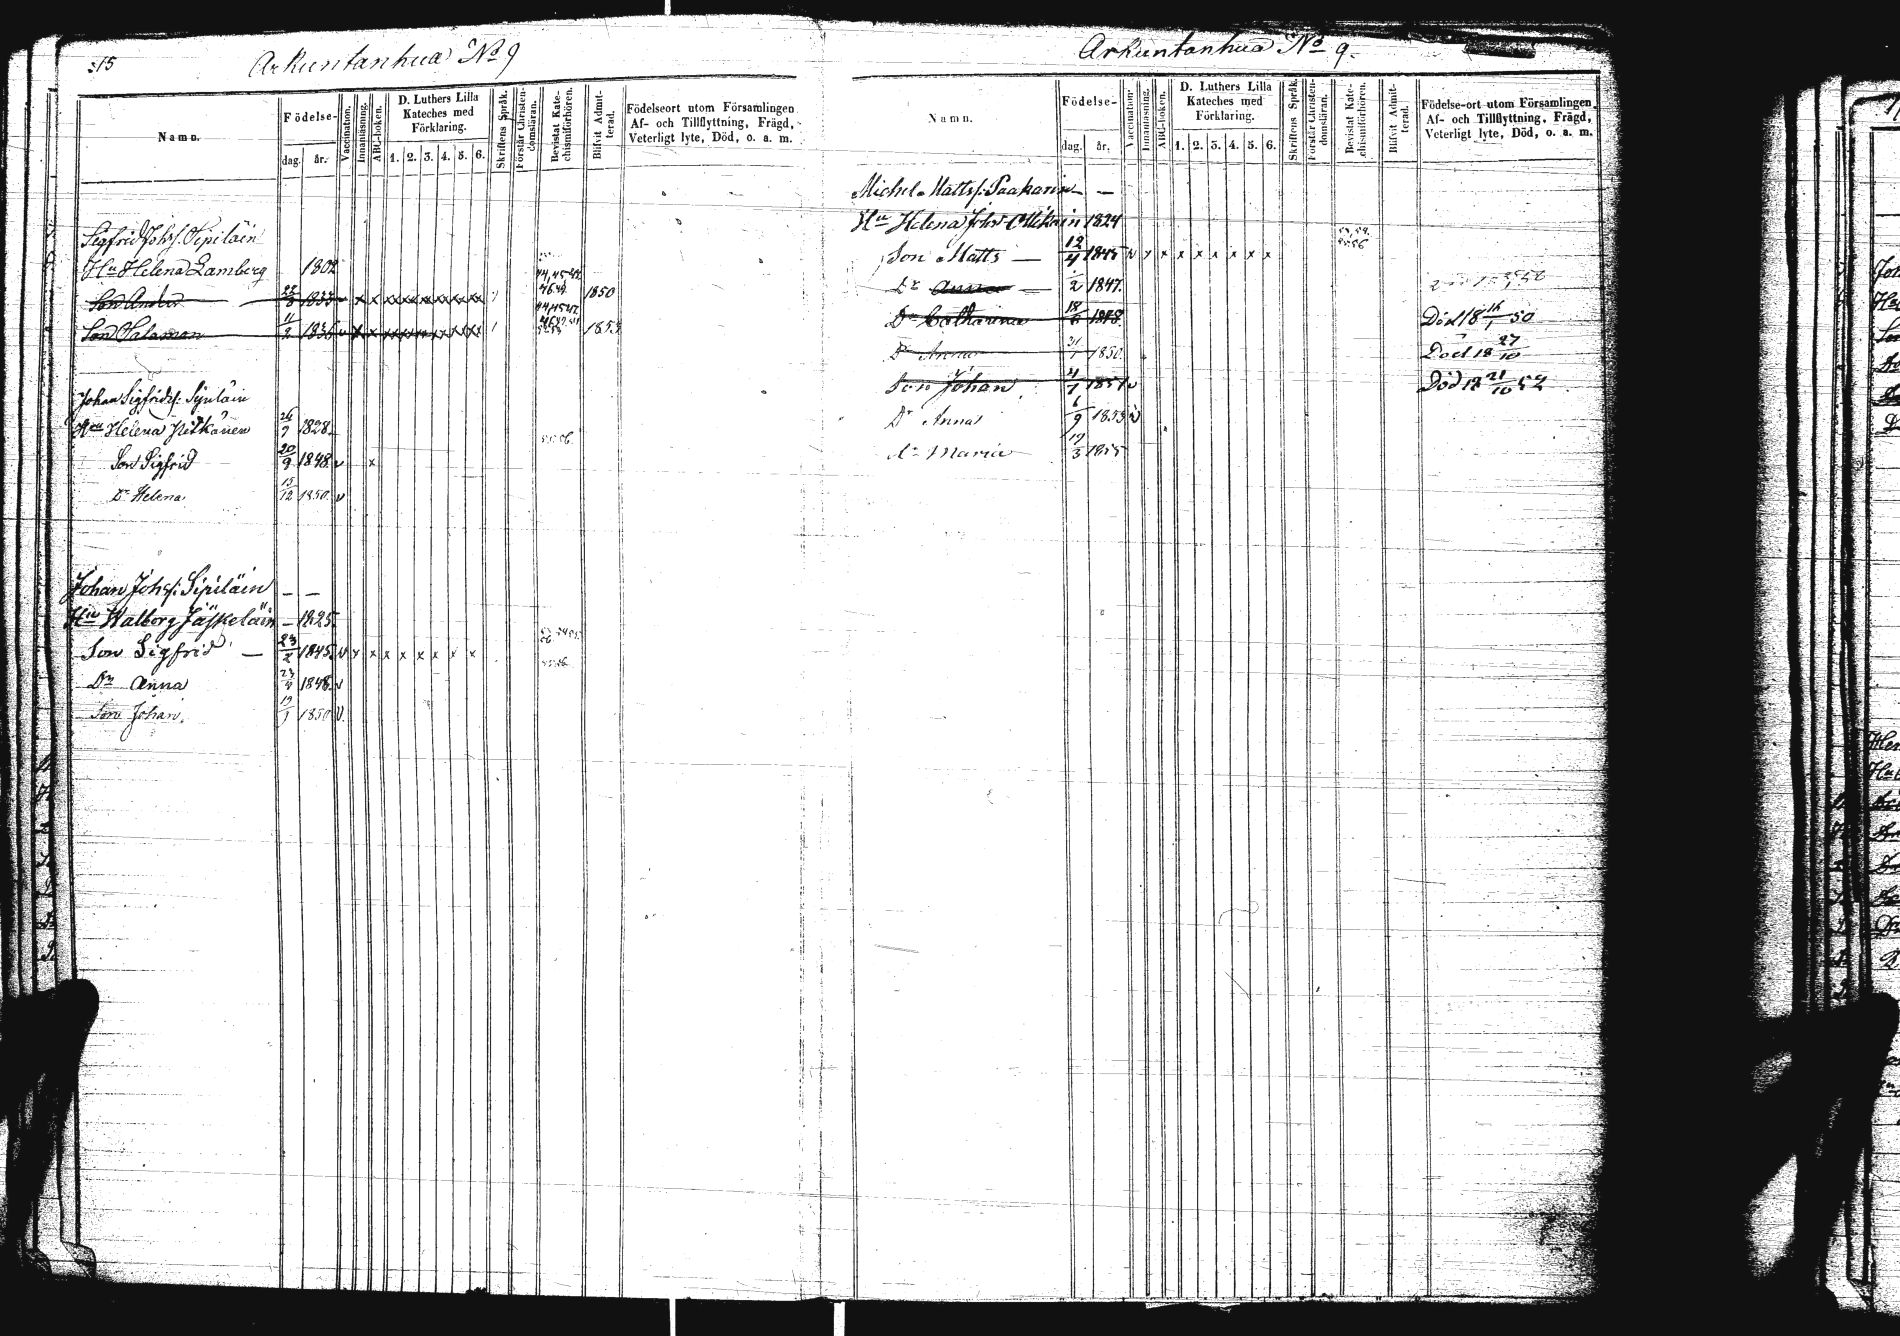 315
Arkuntanhua No 9
Namn. Födelse- dag. år. Vaccination. Innanläsning. ABC-boken. D. Luthers Lilla Kateches med Förklaring. 1. 2. 3. 4. 5. 6. Skriftens Språk. Förstår Christendomsläran. Bevistat Katechismiförhören. Blifvit Admitterad. Födelseort utom Församlingen Af- och Tillflyttning, Frägd, Veterligt lyte, Död, o. a. m.
Sigfrid Johss: Sipiläin
Hu Helena Lamberg 1802
Son Anders 1833 v x x x x x x x x 1850
Son Salomon 11/2 1836 v x x x x x x x x 1853
Johan Sigfridss: Sipiläin
Hu Helena Pitkänen 26/7 1828.
Son Sigfrid 20/9 1848 v x
Dr Helena 15/12 1850 v
Johan Johss: Sipiläin — —
Hu Walborg Jäskeläin — 1825.
Son Sigfrid — 23/2 1845. v x x x x x x x x
Dr Anna 1848. v
Son Johan. 19/1 1850 v
Arkuntanhua No 9.
Namn. Födelse- dag. år. Vaccination. Innanläsning. ABC-boken. D. Luthers Lilla Kateches med Förklaring. 1. 2. 3. 4. 5. 6. Skriftens Språk. Förstår Christendomsläran. Bevistat Katechismiförhören. Blifvit Admitterad. Födelse-ort utom Församlingen Af- och Tillflyttning, Frägd, Veterligt lyte, Död, o. a. m.
Michel Mattss: Paakarin — —
Hu Helena Johsd 1824
Son Matts — 12/4 1845 v x x x x x x x x
Dr Anna — 1847.
Dr Catharina 1848. Död 18 16/1 50
Dr Anna 1850. Död 18 27/10
Son Johan 4/7 1851 v Död 18 21/10 52
Dr Anna 6/9 1853 v
Dr Maria 19/3 1855